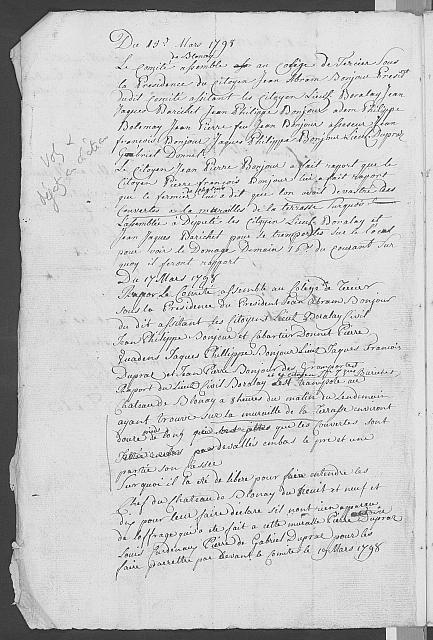 Du 15e Mars 1798
de Blonay
Le Comité assemblé au Colege de Tercier sous
la Presidence du Citoyen Jean Abram Bonjour Presidt
dudit Comité assistant les Citoyen Lieut Boralay Jean
Jaques Barichet Jean Philippe Bonjour adem Philippe
Jean Pierre feu Jean Bonjour assesseur Jean
françois Bonjour Jaques Philippe Bonjour Lieut Dupraz
Gabriel Donnet
Le Citoyen Jean Pierre Bonjour a fait raport que le
Citoyen Pierre françois Bonjour lui a fait raport
que le fermier lui a dit que lon avoit devastée des
Couvertes a la murailles de la terrasse surquoi
Lassemblée a Deputé les Citoyen Lieut Boralay et
Jean Jaques Barichet pour se transporter sur le Local
pour voir le Domage Demain 16e du Courant sur
quoy il feront raport
Vol
Du 17 Mars 1798
Le Comité assemblé au Colege de Tercier
sous la Presidence du President Jean Abram Bonjour
du dit assistant les Citoyens Lieut Boralay Civil
Jean Philippe Bonjour et Cabartier Donnet Pierre
Jaques Phillippe Bonjour Lieut Jaques francois
Dupraz et Jean Pierre Bonjour
Raport du Lieut Civil Boralay
et Citoyen Barichet
Chateau de Blonay a 8 heures du matin du Lendemain
ayant trouvé sur la muraille de la Terrasse environt
douze de long que les Couvertes sont
devallés embas le pré et une
partie son
Surquoi il la été de libere pour faire entendre les
Chef du Chateau de Blonay du huit et neuf et
dix pour leur faire declare sil nont rien
de loffrage qui a été fait a cette muralle Pierre Dupraz
Louis Pierre de Gabriel Dupraz pour les
faire parrettre par devant le Comité le 19 Mars 1798